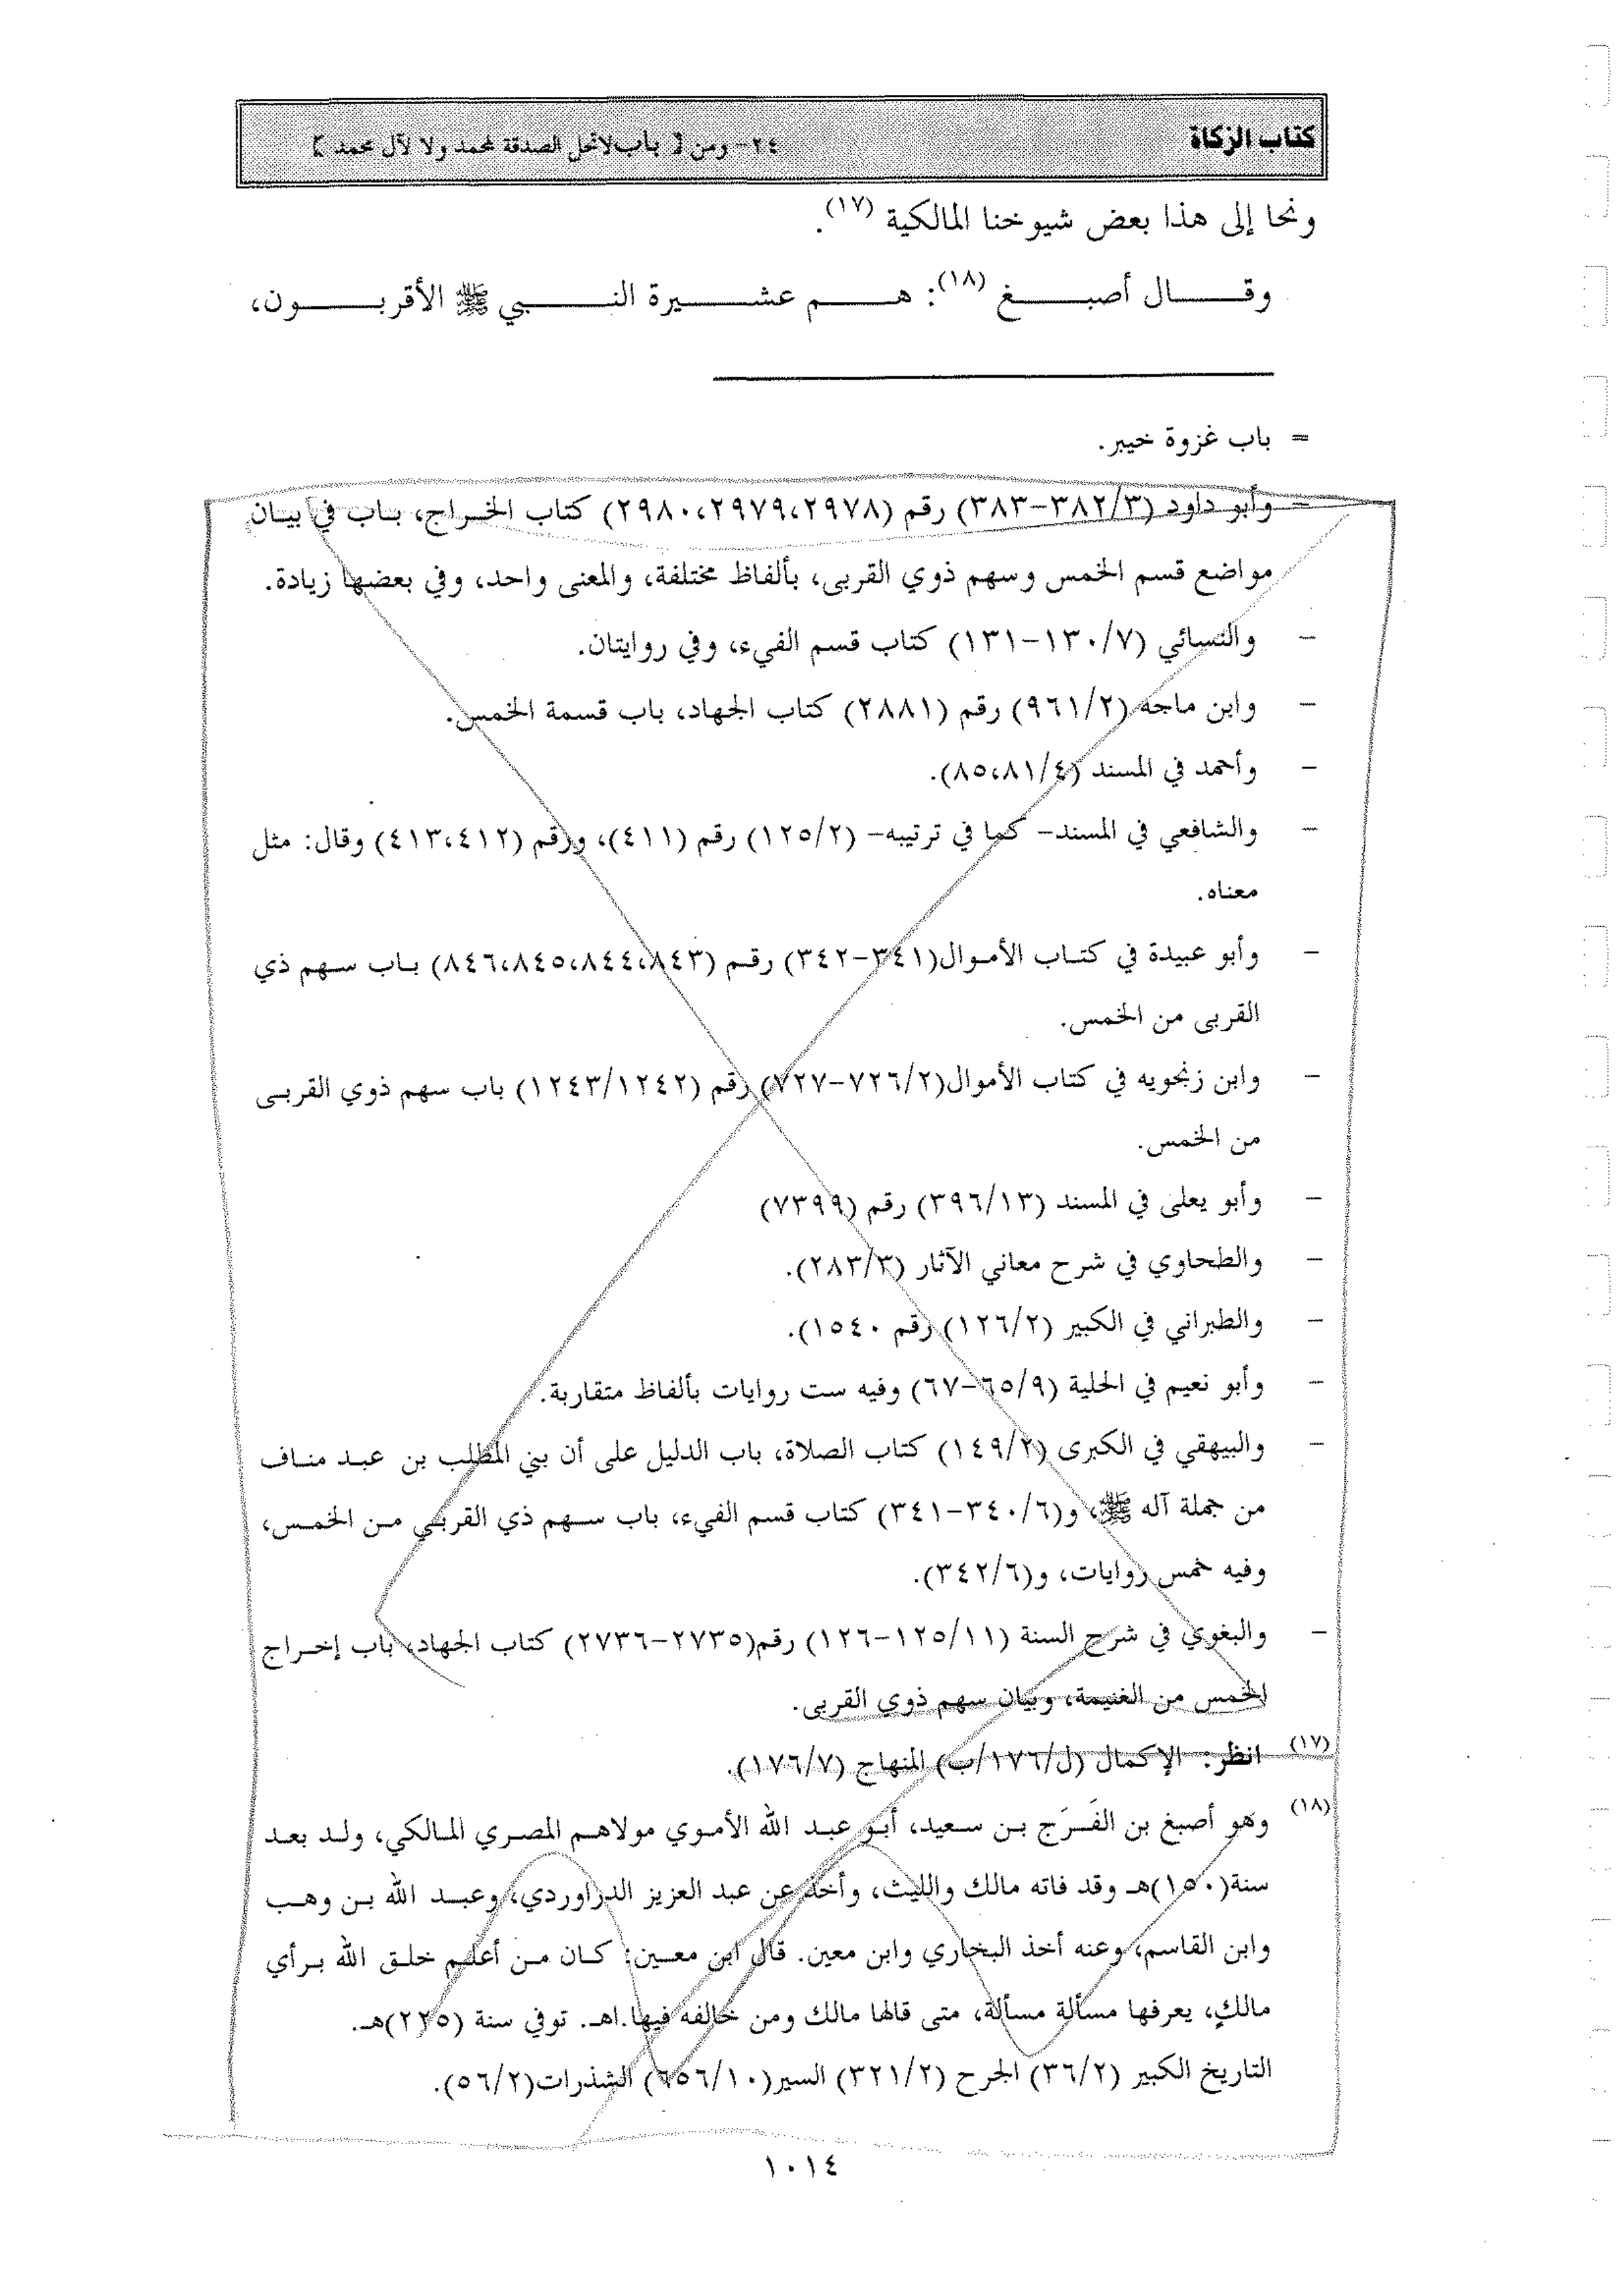 كتاب الزكاة
٢٤- ومن [ باب لاتحل الصدقة لمحمد ولا لآل محمد ]
ونحا إلى هذا بعض شيوخنا المالكية (١٧).
وقـــال أصبـــغ (١٨): هـــم عشـــيرة النـــبي ﷺ الأقربـــون،
= باب غزوة خيبر.
– وأبو داود (٣٨٢/٣-٣٨٣) رقم (٢٩٧٨،٢٩٧٩،٢٩٨٠) كتاب الخراج، باب في بيان
مواضع قسم الخمس وسهم ذوي القربى، بألفاظ مختلفة، والمعنى واحد، وفي بعضها زيادة.
– والنسائي (١٣٠/٧-١٣١) كتاب قسم الفيء، وفي روايتان.
– وابن ماجه (٩٦١/٢) رقم (٢٨٨١) كتاب الجهاد، باب قسمة الخمس.
– وأحمد في المسند (٨١/٤،٨٥).
– والشافعي في المسند- كما في ترتيبه- (١٢٥/٢) رقم (٤١١)، ورقم (٤١٢،٤١٣) وقال: مثل
معناه.
– وأبو عبيدة في كتاب الأموال(٣٤١-٣٤٢) رقم (٨٤٣،٨٤٤،٨٤٥،٨٤٦) باب سهم ذي
القربى من الخمس.
– وابن زنجويه في كتاب الأموال(٧٢٦/٢-٧٢٧) رقم (١٢٤٣/١٢٤٢) باب سهم ذوي القربى
من الخمس.
– وأبو يعلى في المسند (٣٩٦/١٣) رقم (٧٣٩٩)
– والطحاوي في شرح معاني الآثار (٢٨٣/٣).
– والطبراني في الكبير (١٢٦/٢) رقم ١٥٤٠).
– وأبو نعيم في الحلية (٦٥/٩-٦٧) وفيه ست روايات بألفاظ متقاربة.
– والبيهقي في الكبرى (١٤٩/٢) كتاب الصلاة، باب الدليل على أن بني المطلب بن عبد مناف
من جملة آله ﷺ، و(٣٤٠/٦-٣٤١) كتاب قسم الفيء، باب سهم ذي القربى من الخمس،
وفيه خمس روايات، و(٣٤٢/٦).
– والبغوي في شرح السنة (١٢٥/١١-١٢٦) رقم(٢٧٣٥-٢٧٣٦) كتاب الجهاد، باب إخراج
الخمس من الغنيمة، وبيان سهم ذوي القربى.
(١٧) انظر: الإكمال (ل/١٧٦/ب) المنهاج (١٧٦/٧).
(١٨) وهو أصبغ بن الفَرَج بن سعيد، أبو عبد الله الأموي مولاهم المصري المالكي، ولد بعد
سنة(١٥٠)هـ وقد فاته مالك والليث، وأخذ عن عبد العزيز الدراوردي، وعبد الله بن وهب
وابن القاسم، وعنه أخذ البخاري وابن معين. قال ابن معين: كان من أعلم خلق الله برأي
مالكٍ، يعرفها مسألة مسألة، متى قالها مالك ومن خالفه فيها.اهـ. توفي سنة (٢٢٥)هـ.
التاريخ الكبير (٣٦/٢) الجرح (٣٢١/٢) السير(٦٥٦/١٠) الشذرات(٥٦/٢).
١٠١٤